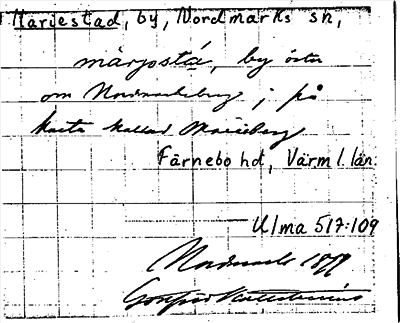 Mariestad, by, Nordmarks sn,
märjostá, by öster
om Nordmarksberg; på
karta kallad Marieberg
Färnebo hd, Värml. län.
Ulma 517:109
Nordmark 1899